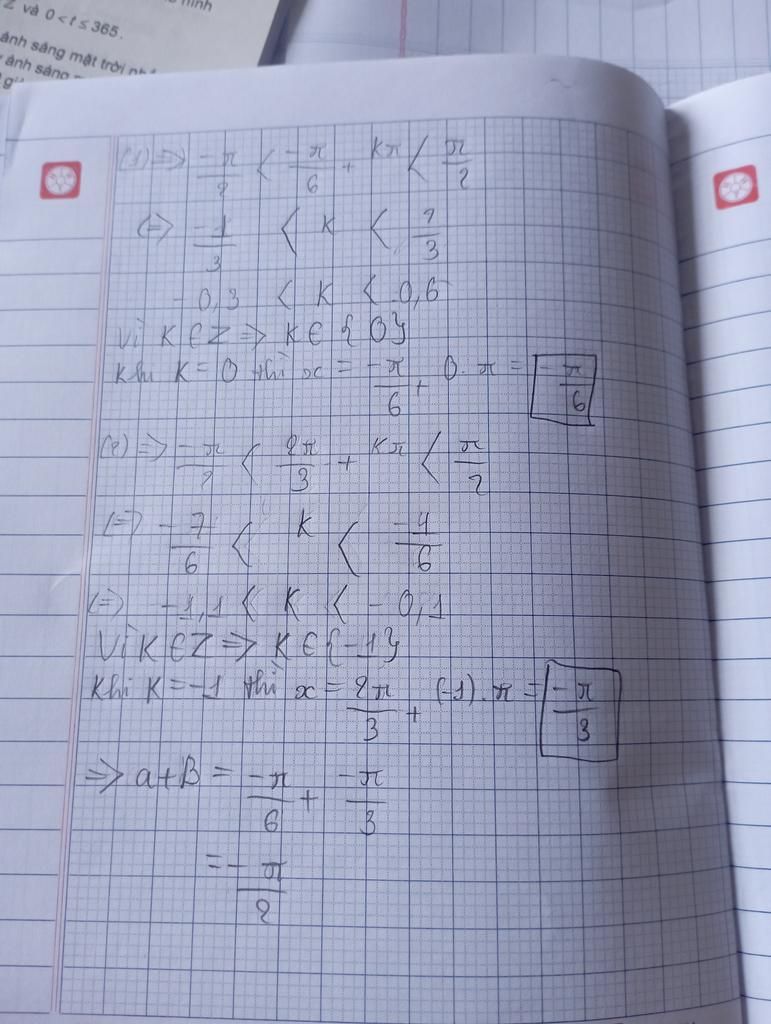 Z và 0 < t ≤ 365.
ánh sáng mặt trời
ánh sáng
(1) => -π/2 < -π/6 + Kπ < π/2
(=> -1/3 < K < 2/3
- 0,3 < K < 0,6
Vì K ∈ Z => K ∈ {0}
Khi K = 0 thì x = -π/6 + 0 . π = -π/6
(2) => -π/2 < 2π/3 + Kπ < π/2
(=> -7/6 < K < -1/6
(=> -1,1 < K < - 0,1
Vì K ∈ Z => K ∈ {-1}
Khi K = -1 thì x = 2π/3 + (-1) . π = -π/3
=> a+B = -π/6 + -π/3
= -π/2